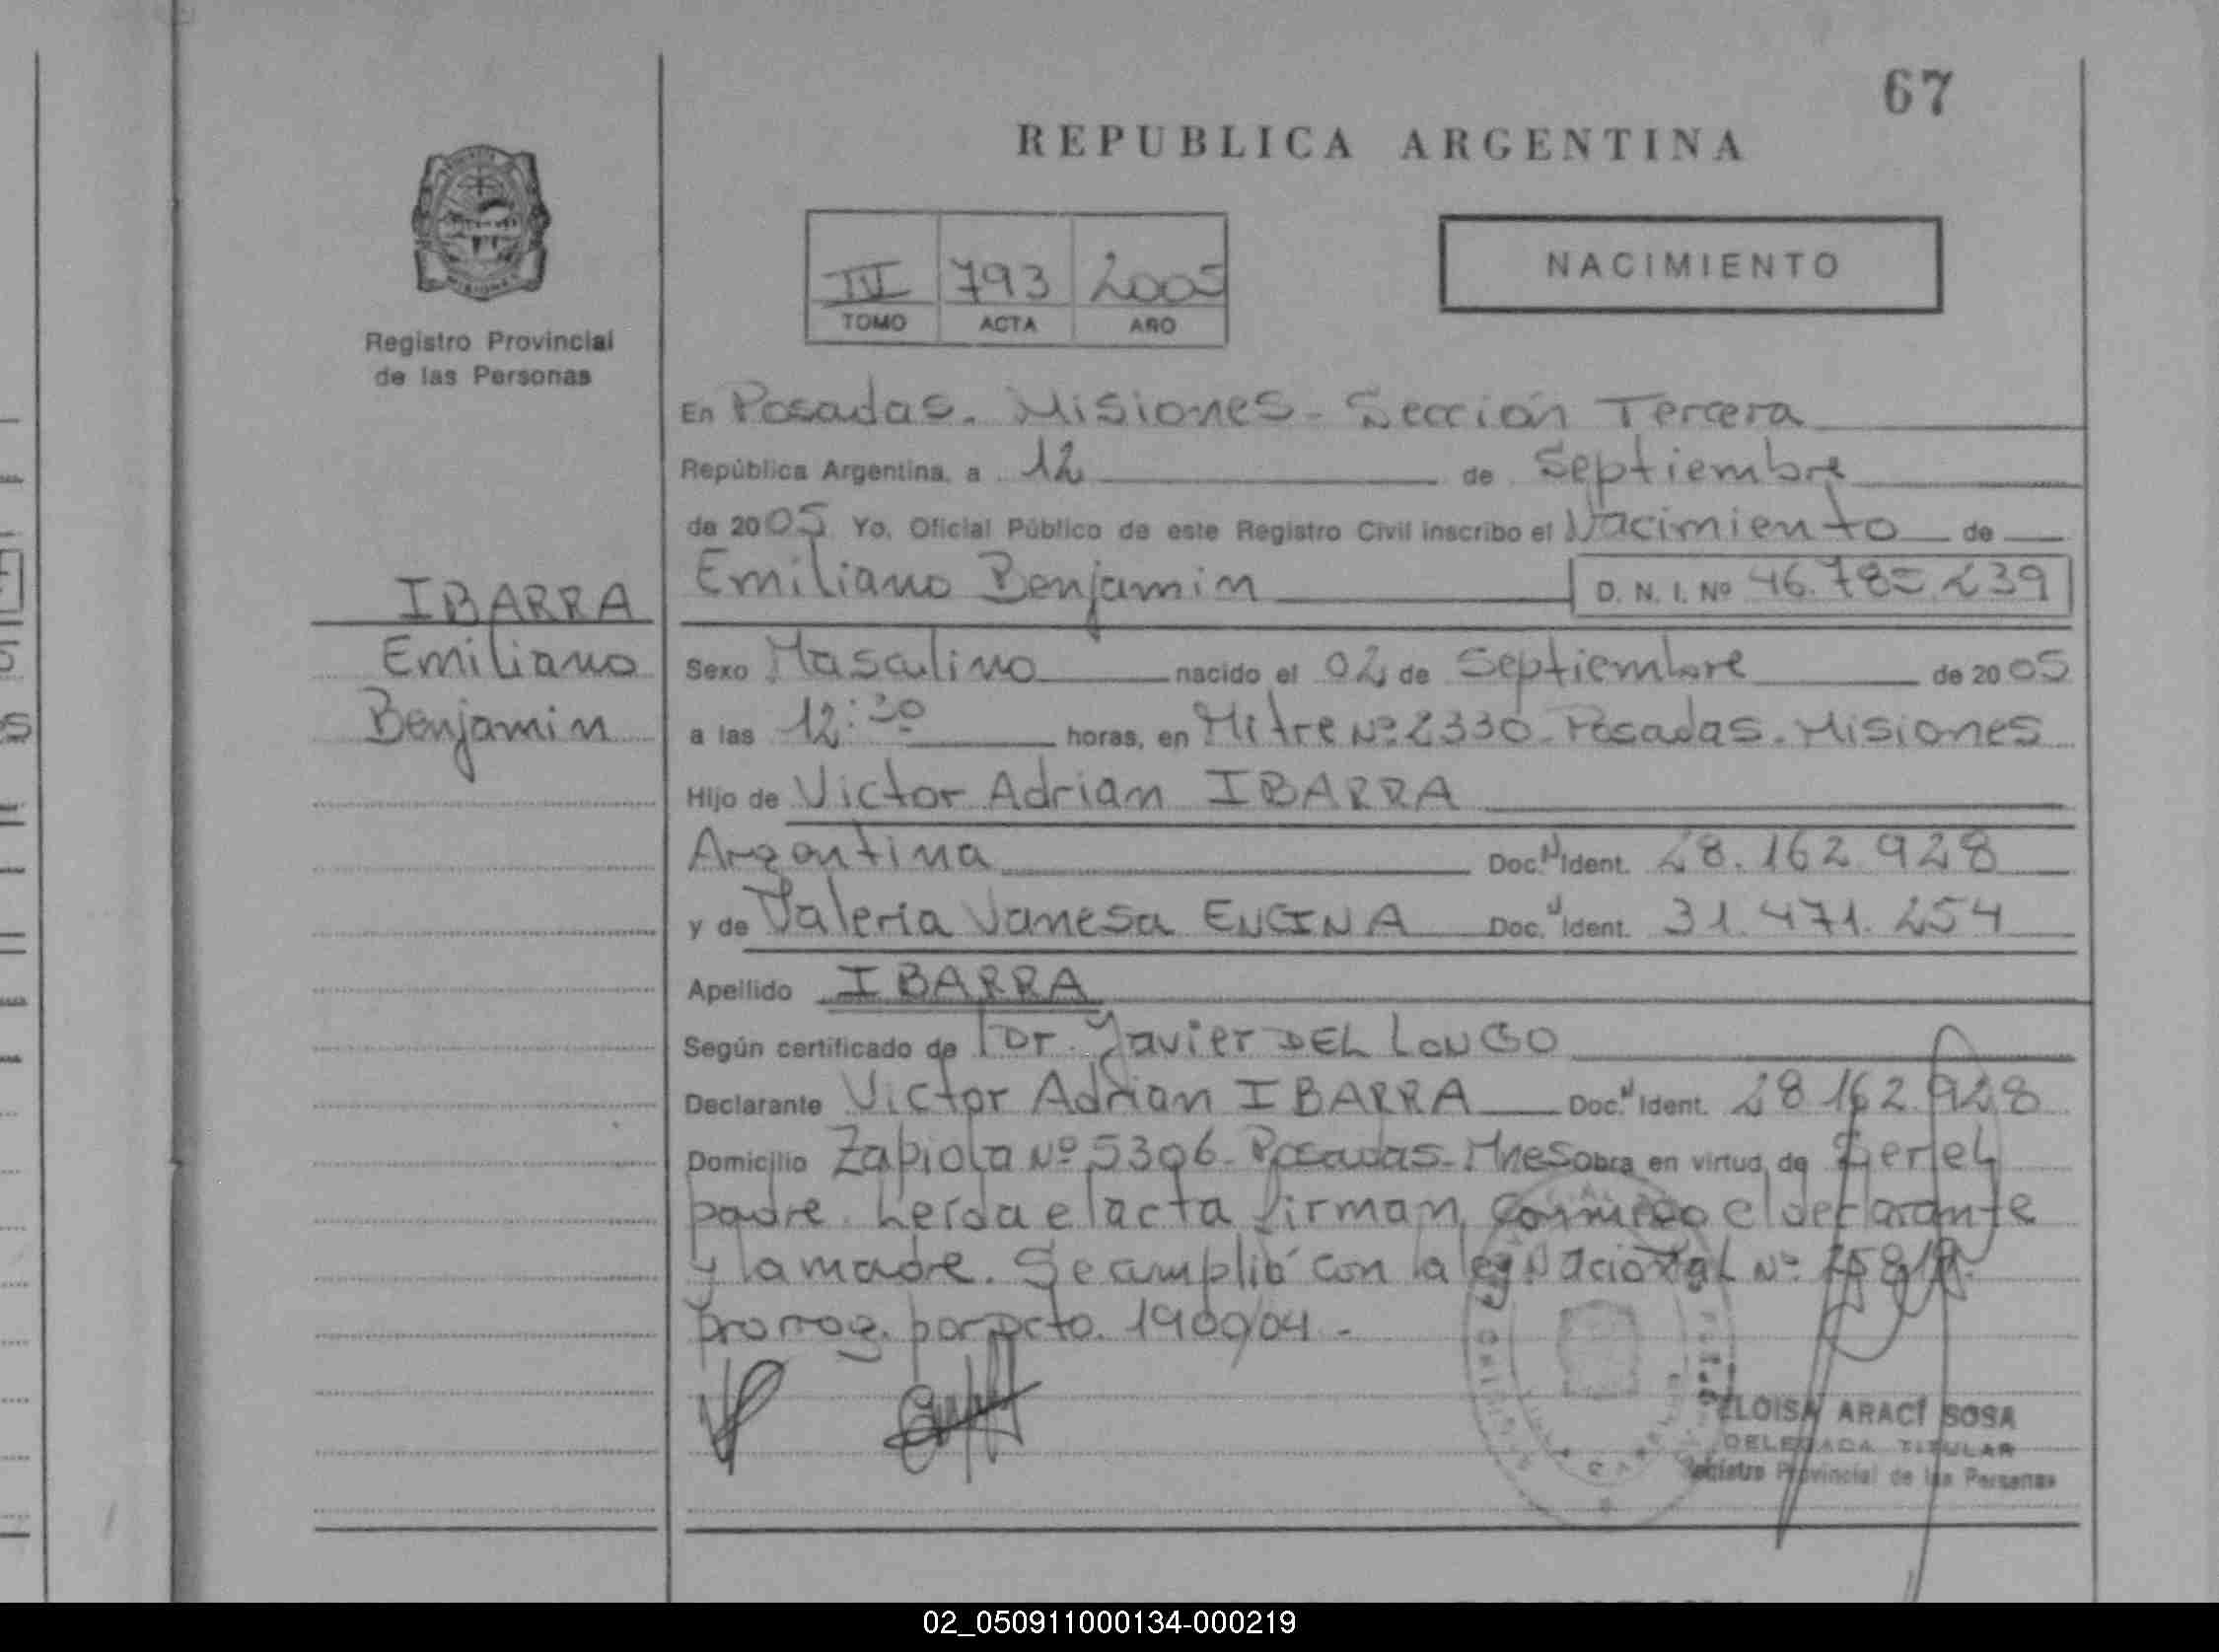 67
REPUBLICA ARGENTINA
NACIMIENTO
III 793 2005
TOMO ACTA AÑO
Registro Provincial
de las Personas
En Posadas. Misiones - Sección Tercera
República Argentina, a 12 de Septiembre
de 2005 Yo, Oficial Público de este Registro Civil inscribo el Nacimiento de
Emiliano Benjamin D. N. I. Nº 46.785.239
IBARRA
Emiliano
Benjamin
Sexo Masculino nacido el 02 de Septiembre de 2005
a las 12:30 horas, en Mitre Nº 2330 - Posadas. Misiones
Hijo de Victor Adrian IBARRA
Argentina Doc. N Ident. 28.162.928
y de Valeria Vanesa ENCINA Doc. Ident. 31.471.254
Apellido IBARRA
Según certificado de Dr. Javier DEL LONGO
Declarante Victor Adrian IBARRA Doc. Ident. 28.162.928
Domicilio Zapiola Nº 5306 - Posadas - Mnes Obra en virtud de Ser el
padre. Leída el acta firman conmigo el declarante
y la madre. Se cumplió con la ley Nacional Nº
prorrog. por Dcto. 1900/04 -
ELOISA ARACÍ SOSA
DELEGADA TITULAR
Registro Provincial de las Personas
02_050911000134-000219